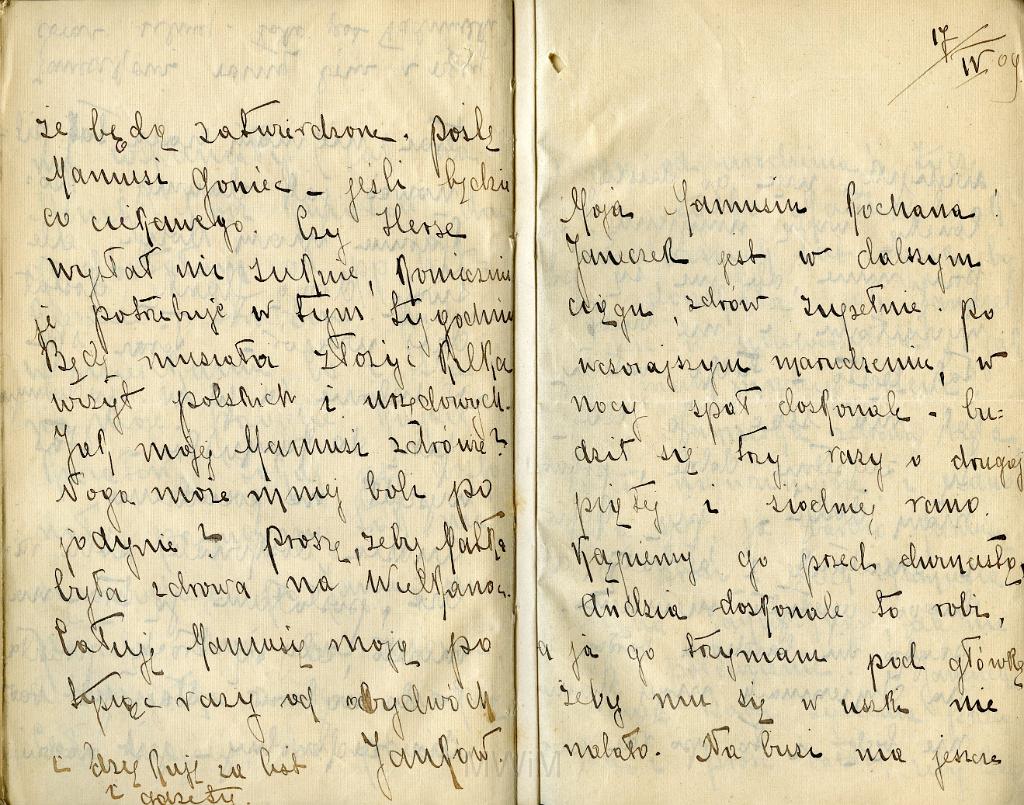 że będą zatwierdzone. Poślę
Mamusi Goniec – jeśli będzie
co ciekawego. Czy Herse
wysłał mi suknię, koniecznie
jej potrzebuję w tym tygodniu
Będę musiała złożyć kilka
wizyt polskich i urzędowych.
Jak mojej Mamusi zdrowie?
Noga może mniej boli po
jodynie? proszę, żeby Matka
była zdrowa na Wielkanoc.
Całuję Mamusię moją po
tysiąc razy od obydwóch
Janków.
i dziękuję za list
i gazetę.
17/IV 09
Moja Mamusiu kochana!
Janeczek jest w dalszym
ciągu, zdrów zupełnie. Po
wczorajszym marudzeniu, w
nocy spał doskonale – bu=
dził się trzy razy o drugiej
piątej i siódmej rano.
Kąpiemy go przed dwunastą,
Andzia doskonale to robi,
a ja go trzymam pod główkę
żeby mu się w uszki nie
nalało. Na buzi ma jeszcze
MWiM